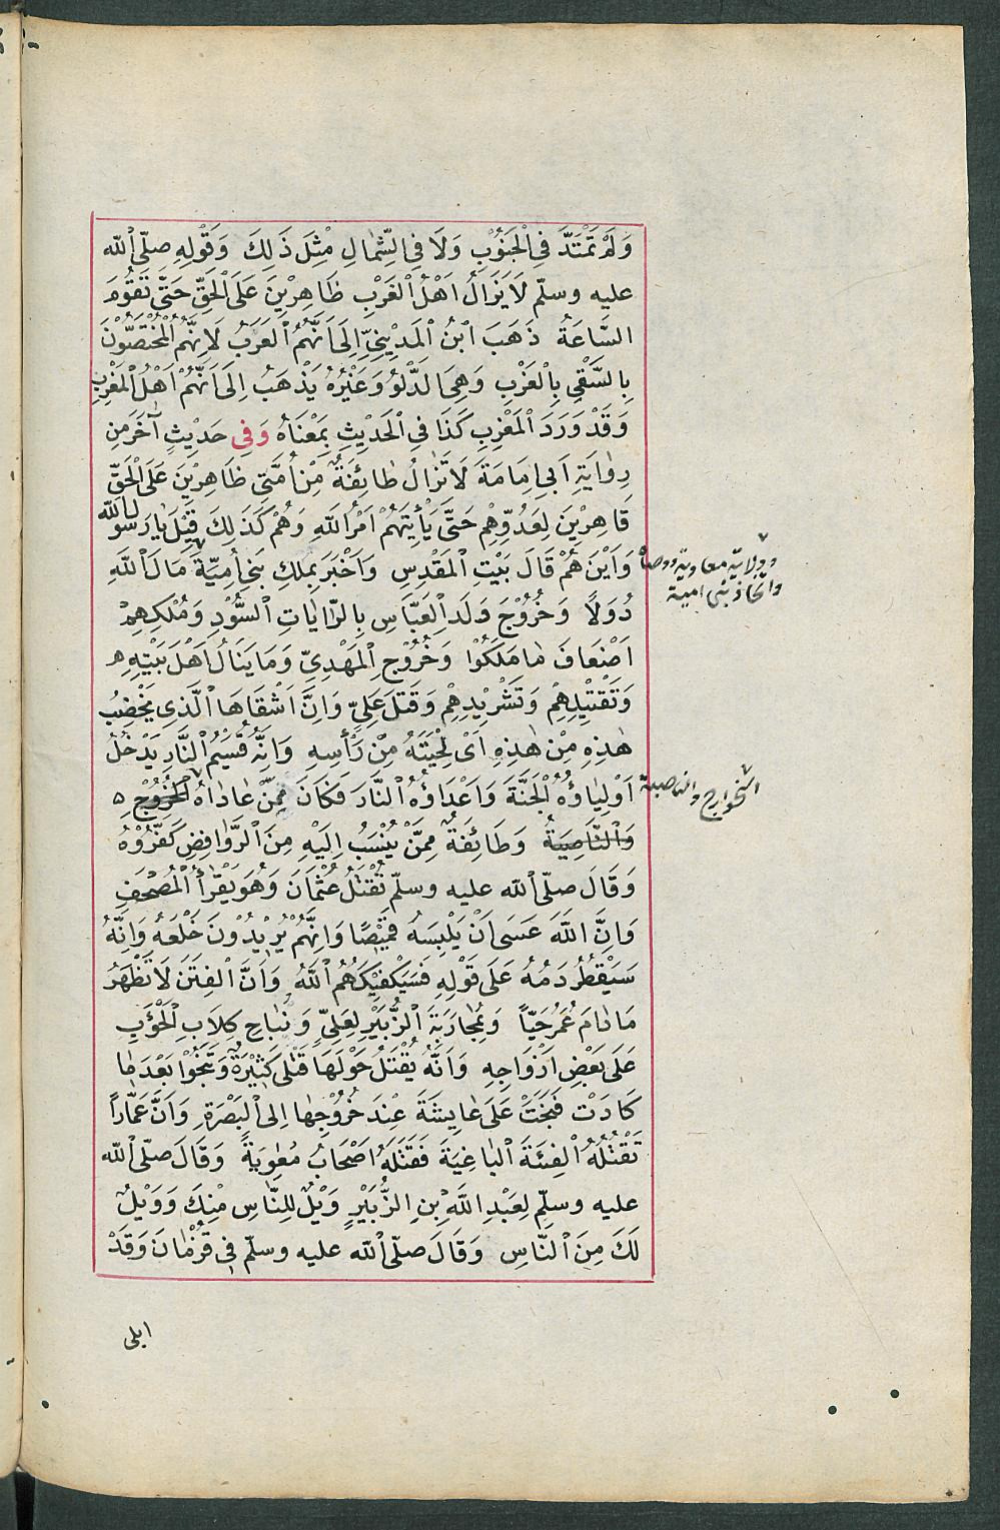 وَلَمْ تَمْتَدَّ فِي الْجَنُوْبِ وَلَا فِي الشِّمَالِ مِثْلَ ذَلِكَ وَقَوْلِهِ صلّى الله
عليه وسلّم لَا يَزَالُ اَهْلُ الْغَرْبِ ظَاهِرِيْنَ عَلَى الْحَقِّ حَتَّى تَقُوْمَ
السَّاعَةُ ذَهَبَ ابْنُ الْمَدِيْنِيِّ اِلَى اَنَّهُمُ الْعَرَبُ لِاَنَّهُمُ الْمُخْتَصُّوْنَ
بِالسَّقْيِ بِالْغَرْبِ وَهِيَ الدَّلْوُ وَغَيْرُهُ يَذْهَبُ اِلَى اَنَّهُمْ اَهْلُ الْمَغْرِبِ
وَقَدْ وَرَدَ الْمَغْرِبِ كَذَا فِي الْحَدِيْثِ بِمَعْنَاهُ وَفِي حَدِيْثٍ آخَرَ مِنْ
رِوَايَةِ اَبِي اِمَامَةَ لَا تَزَالُ طَائِفَةٌ مِنْ اُمَّتِي ظَاهِرِيْنَ عَلَى الْحَقِّ
قَاهِرِيْنَ لِعَدُوِّهِمْ حَتَّى يَأْتِيَهُمْ اَمْرُ اللّٰهِ وَهُمْ كَذَلِكَ قِيْلَ يَا رَسُولَ الله
وَاَيْنَ هُمْ قَالَ بَيْتِ الْمَقْدِسِ وَاَخْبَرَ بِمُلْكِ بَنِي اُمَيَّةَ مَالَ اللّٰهِ
وولاية معاوية ووصاه
واتخاذ بنى امية
دُوَلًا وَخُرُوْجَ وَلَدِ الْعَبَّاسِ بِالرَّايَاتِ السُّوْدِ وَمُلْكِهِمْ
اَضْعَافَ مَا مَلَكُوْا وَخُرُوْجِ الْمَهْدِيِّ وَمَا يَنَالُ اَهْلَ بَيْتِهِ
وَتَقْتِيْلِهِمْ وَتَشْرِيْدِهِمْ وَقَتْلَ عَلِيٍّ وَاِنَّ اَشْقَاهَا الَّذِي يَخْضِبُ
هٰذِهِ مِنْ هٰذِهِ اَيْ لِحْيَتَهُ مِنْ رَأْسِهِ وَاِنَّهُ قَسِيْمُ النَّارِ يَدْخُلُ
اَوْلِيَاؤُهُ الْجَنَّةَ وَاَعْدَاؤُهُ النَّارَ فَكَانَ مِمَّنْ عَادَاهُ الْخُرُوْجِ
الخوارج والناصبة
وَالنَّاصِبَةُ وَطَائِفَةٌ مِمَّنْ يُنْسَبُ اِلَيْهِ مِنَ الرَّوَافِضِ كَفَّرُوْهُ
وَقَالَ صلّى الله عليه وسلّم يُقْتَلُ عُثْمَانَ وَهُوَ يَقْرَأُ الْمُصْحَفِ
وَاِنَّ اللّٰهَ عَسَى اَنْ يَلْبِسَهُ قَمِيْصًا وَاِنَّهُمْ يُرِيْدُوْنَ خَلْعَهُ وَاِنَّهُ
سَيَقْطُرُ دَمُهُ عَلَى قَوْلِهِ فَسَيَكْفِيْكَهُمُ اللّٰهُ وَاَنَّ الْفِتَنَ لَا تَظْهَرُ
مَا دَامَ عُمَرُ حَيًّا وَبِمُحَارَبَةِ الزُّبَيْرِ لِعَلِيٍّ وَنُبَاحِ كِلَابِ الْحَوْءَبِ
عَلَى بَعْضِ اَزْوَاجِهِ وَاَنَّهُ يُقْتَلُ حَوْلَهَا قَتْلٰى كَثِيْرَةٌ وَتَنْجُوْا بَعْدَ مَا
كَادَتْ فَنَبَحَتْ عَلَى عَايِشَةَ عِنْدَ خُرُوْجِهَا اِلَى الْبَصْرَةِ وَاَنَّ عَمَّارًا
تَقْتُلُهُ الْفِئَةَ الْبَاغِيَةَ فَقَتَلَهُ اَصْحَابُ مُعٰوِيَةَ وَقَالَ صلّى الله
عليه وسلّم لِعَبْدِ اللّٰهِ بْنِ الزُّبَيْرِ وَيْلٌ لِلنَّاسِ مِنْكَ وَوَيْلٌ
لَكَ مِنَ النَّاسِ وَقَالَ صلّى الله عليه وسلّم فِي قُزْمَانَ وَقَدْ
ابلى